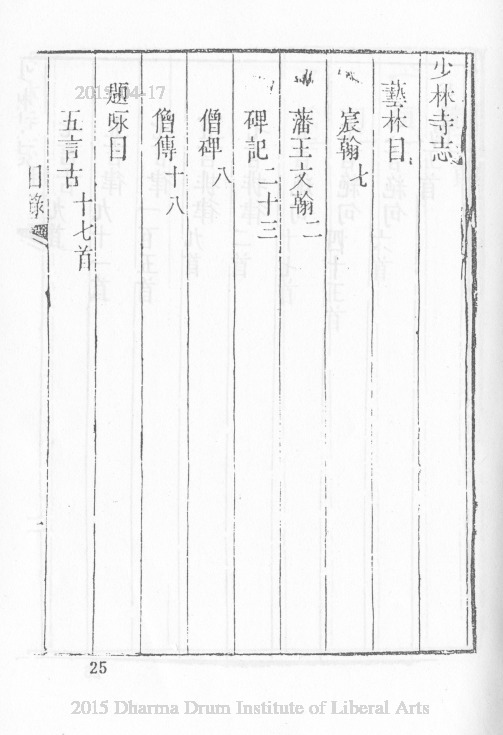 少林寺志
藝林目
宸翰七
藩王文翰二
碑記二十三
僧碑八
僧傳十八
題咏目
五言古十七首
目錄
25
2015-04-17
2015 Dharma Drum Institute of Liberal Arts